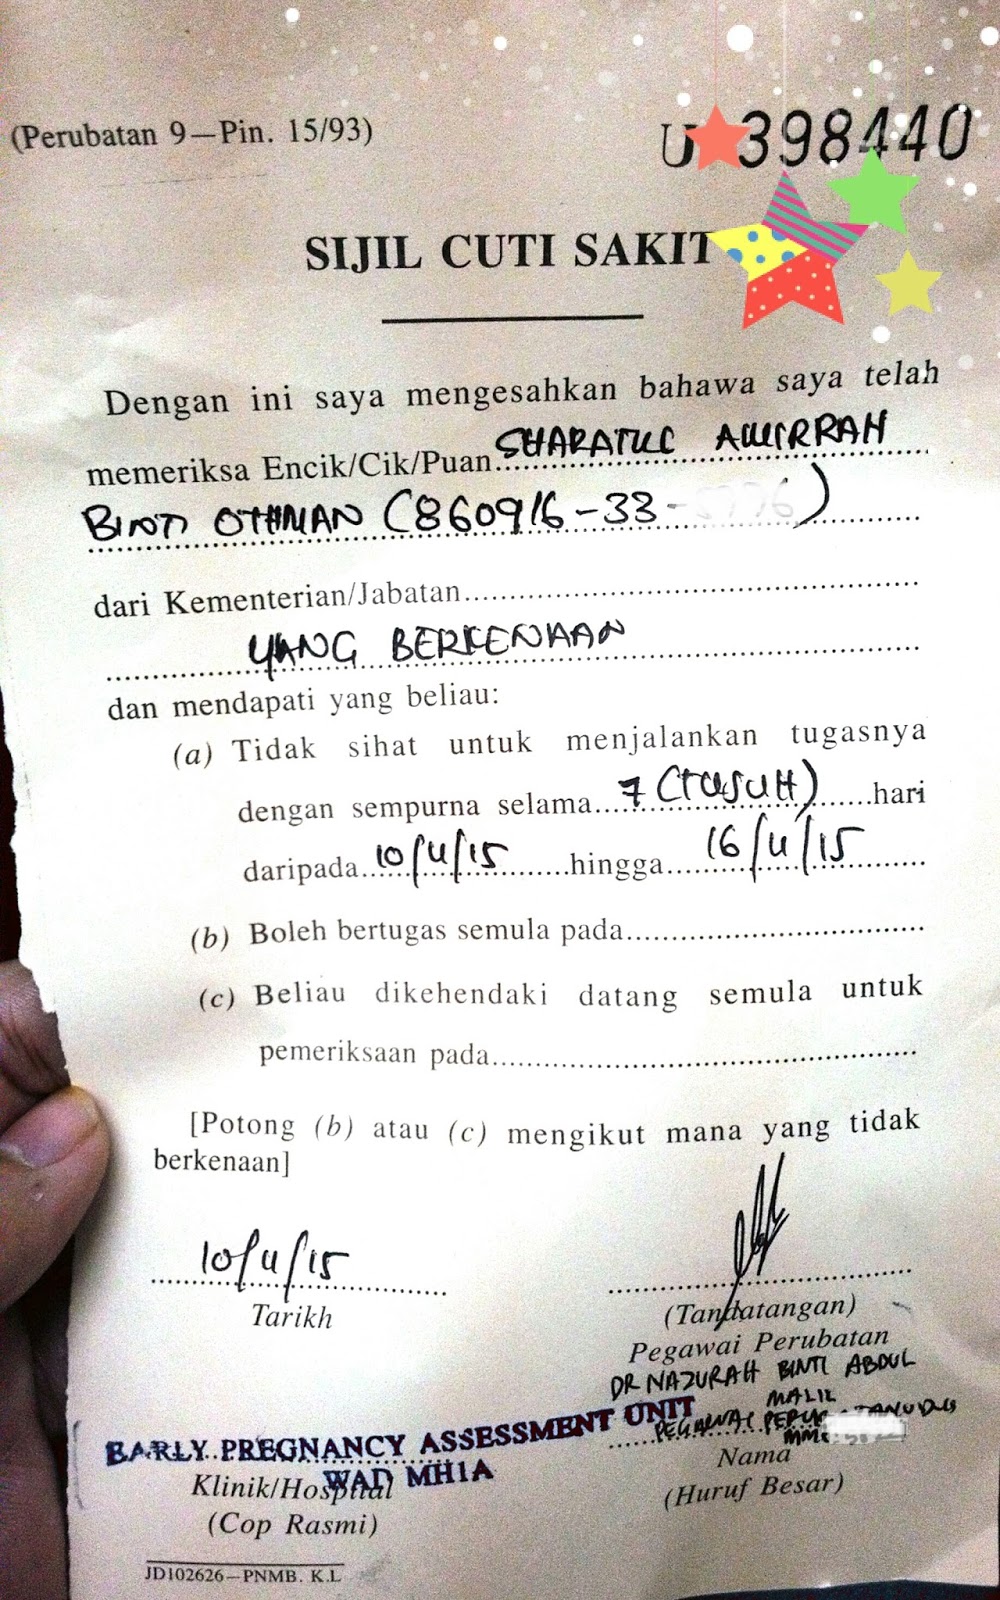 (Perubatan 9—Pin. 15/93)
U 398440
SIJIL CUTI SAKIT
Dengan ini saya mengesahkan bahawa saya telah
memeriksa Encik/Cik/Puan SHARATUL
BINTI OTHMAN (860916-33- )
dari Kementerian/Jabatan
YANG BERKENAAN
dan mendapati yang beliau:
(a) Tidak sihat untuk menjalankan tugasnya
dengan sempurna selama 7 (TUJUH) hari
daripada 10/4/15 hingga 16/4/15
(b) Boleh bertugas semula pada
(c) Beliau dikehendaki datang semula untuk
pemeriksaan pada
[Potong (b) atau (c) mengikut mana yang tidak
berkenaan]
10/4/15
Tarikh
(Tandatangan)
Pegawai Perubatan
DR NAZURAH BINTI ABDUL
MALIK
PEGAWAI
EARLY PREGNANCY ASSESSMENT UNIT
WAD MH1A
Klinik/Hospital
(Cop Rasmi)
Nama
(Huruf Besar)
JD102626—PNMB. K.L